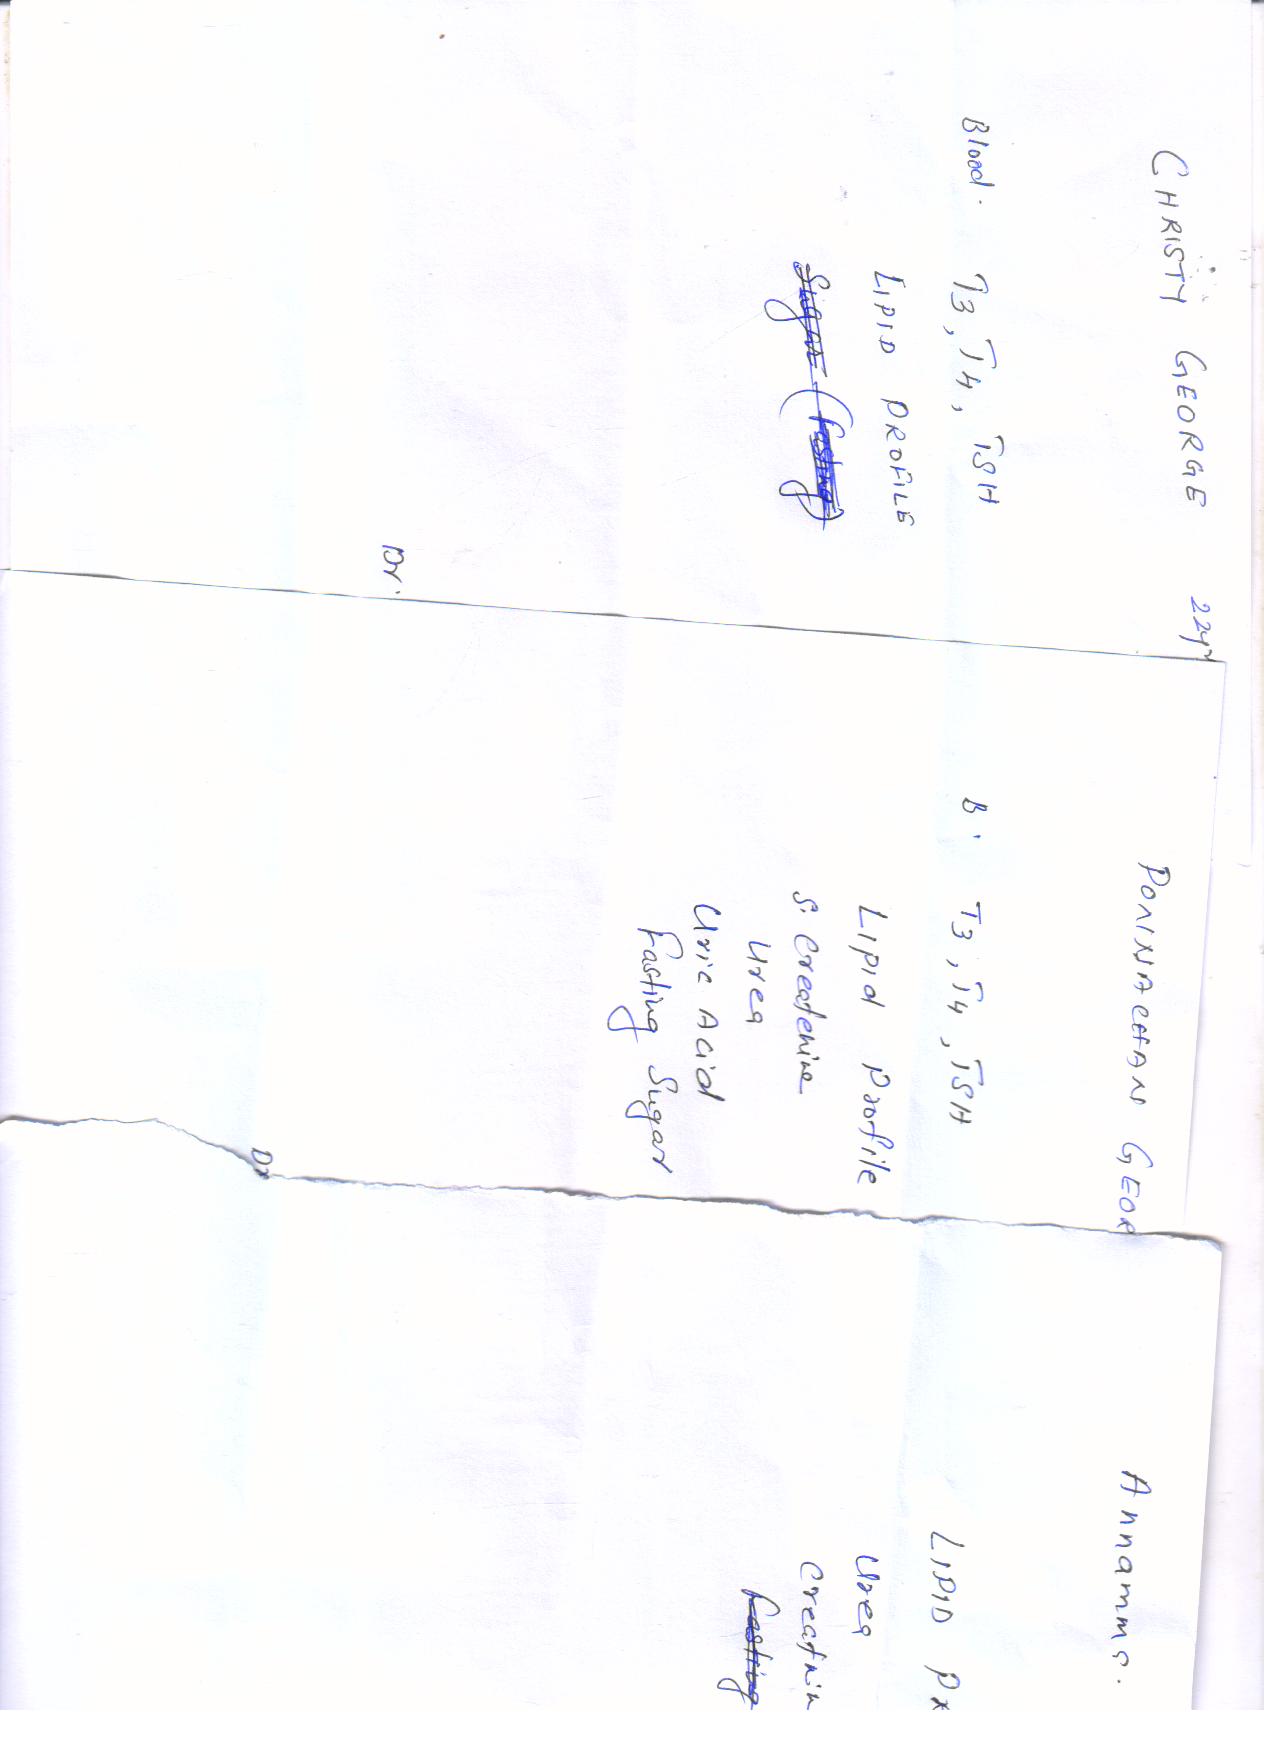 CHRISTY GEORGE 22yr
Blood. T3, T4, TSH
LIPID PROFILE
Sugar (fasting)
Dr.
PONINACHAN GEOR
B. T3, T4, TSH
Lipid Profile
S. Createnine
Urea
Uric Acid
Fasting Sugar
Dr
Annamma.
LIPID Pr
Urea
Creatnin
Fasting